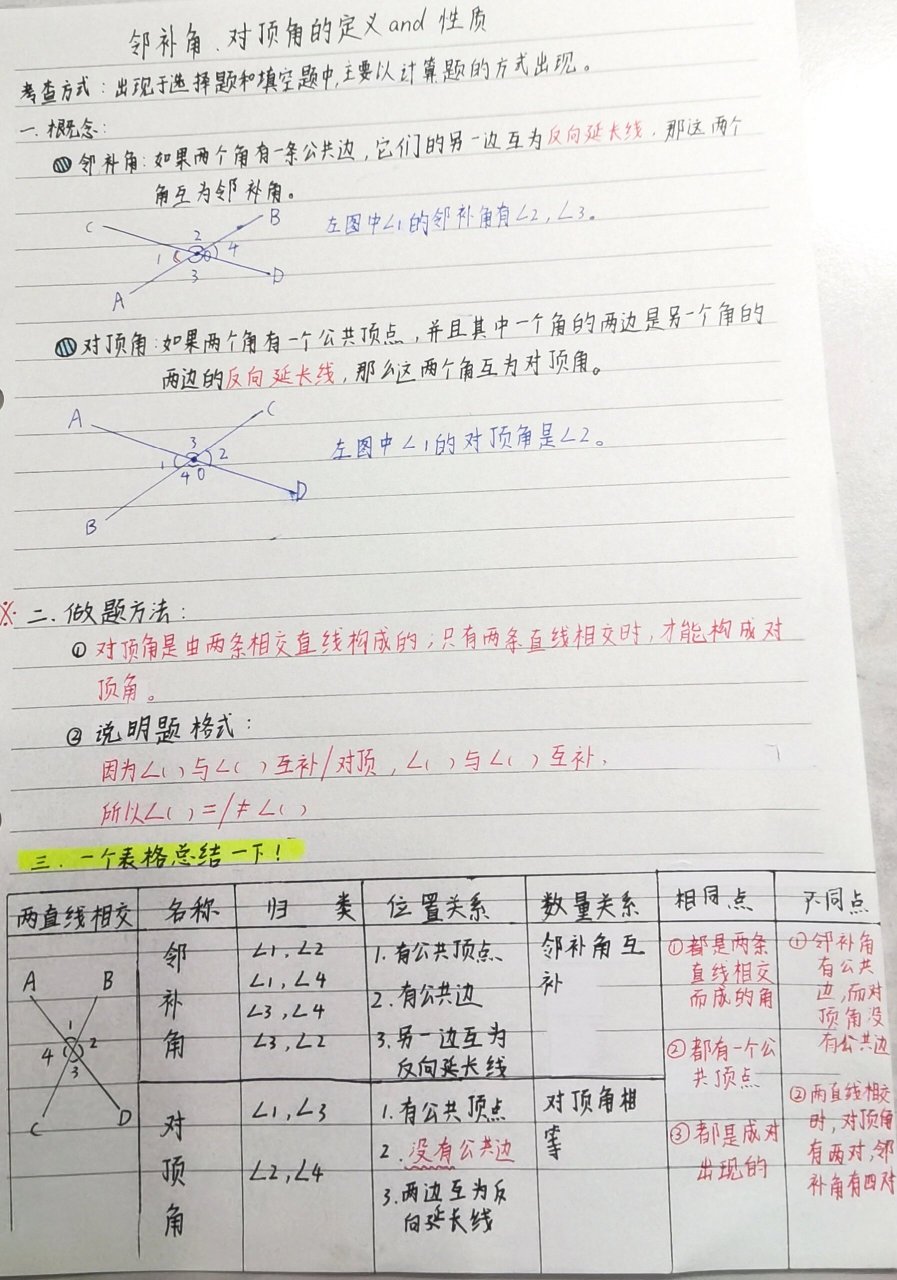 邻补角、对顶角的定义and性质
考查方式：出现于选择题和填空题中,主要以计算题的方式出现。
一.概念：
邻补角：如果两个角有一条公共边,它们的另一边互为反向延长线.那这两个
角互为邻补角。
C
B
左图中∠1的邻补角有∠2,∠3。
2
1
O
4
3
A
D
对顶角：如果两个角有一个公共顶点,并且其中一个角的两边是另一个角的
两边的反向延长线,那么这两个角互为对顶角。
A
C
左图中∠1的对顶角是∠2。
3
1
2
4
O
D
B
※二.做题方法：
① 对顶角是由两条相交直线构成的;只有两条直线相交时,才能构成对
顶角。
② 说明题格式：
因为∠( )与∠( )互补/对顶,∠( )与∠( )互补,
所以∠( )=/≠∠( )
三.一个表格总结一下!
两直线相交 名称 归类 位置关系 数量关系 相同点 不同点
A
B
1
4
2
3
C
D
邻
补
角
∠1,∠2
∠1,∠4
∠3,∠4
∠3,∠2
1.有公共顶点
2.有公共边
3.另一边互为
反向延长线
邻补角互
补
对
顶
角
∠1,∠3
∠2,∠4
1.有公共顶点
2.没有公共边
3.两边互为反
向延长线
对顶角相
等
①都是两条
直线相交
而成的角
②都有一个公
共顶点
③都是成对
出现的
①邻补角
有公共
边,而对
顶角没
有公共边
②两直线相交
时,对顶角
有两对,邻
补角有四对